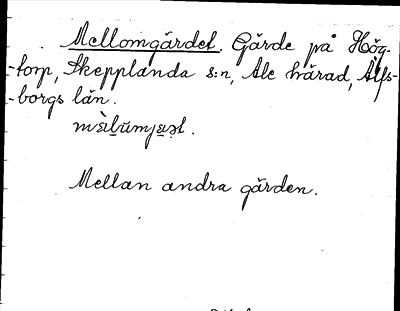 Mellomgärdet. Gärde på Hög-
-torp, Skepplanda s:n, Ale härad, Älfs-
-borgs län.
Mellan andra gärden.